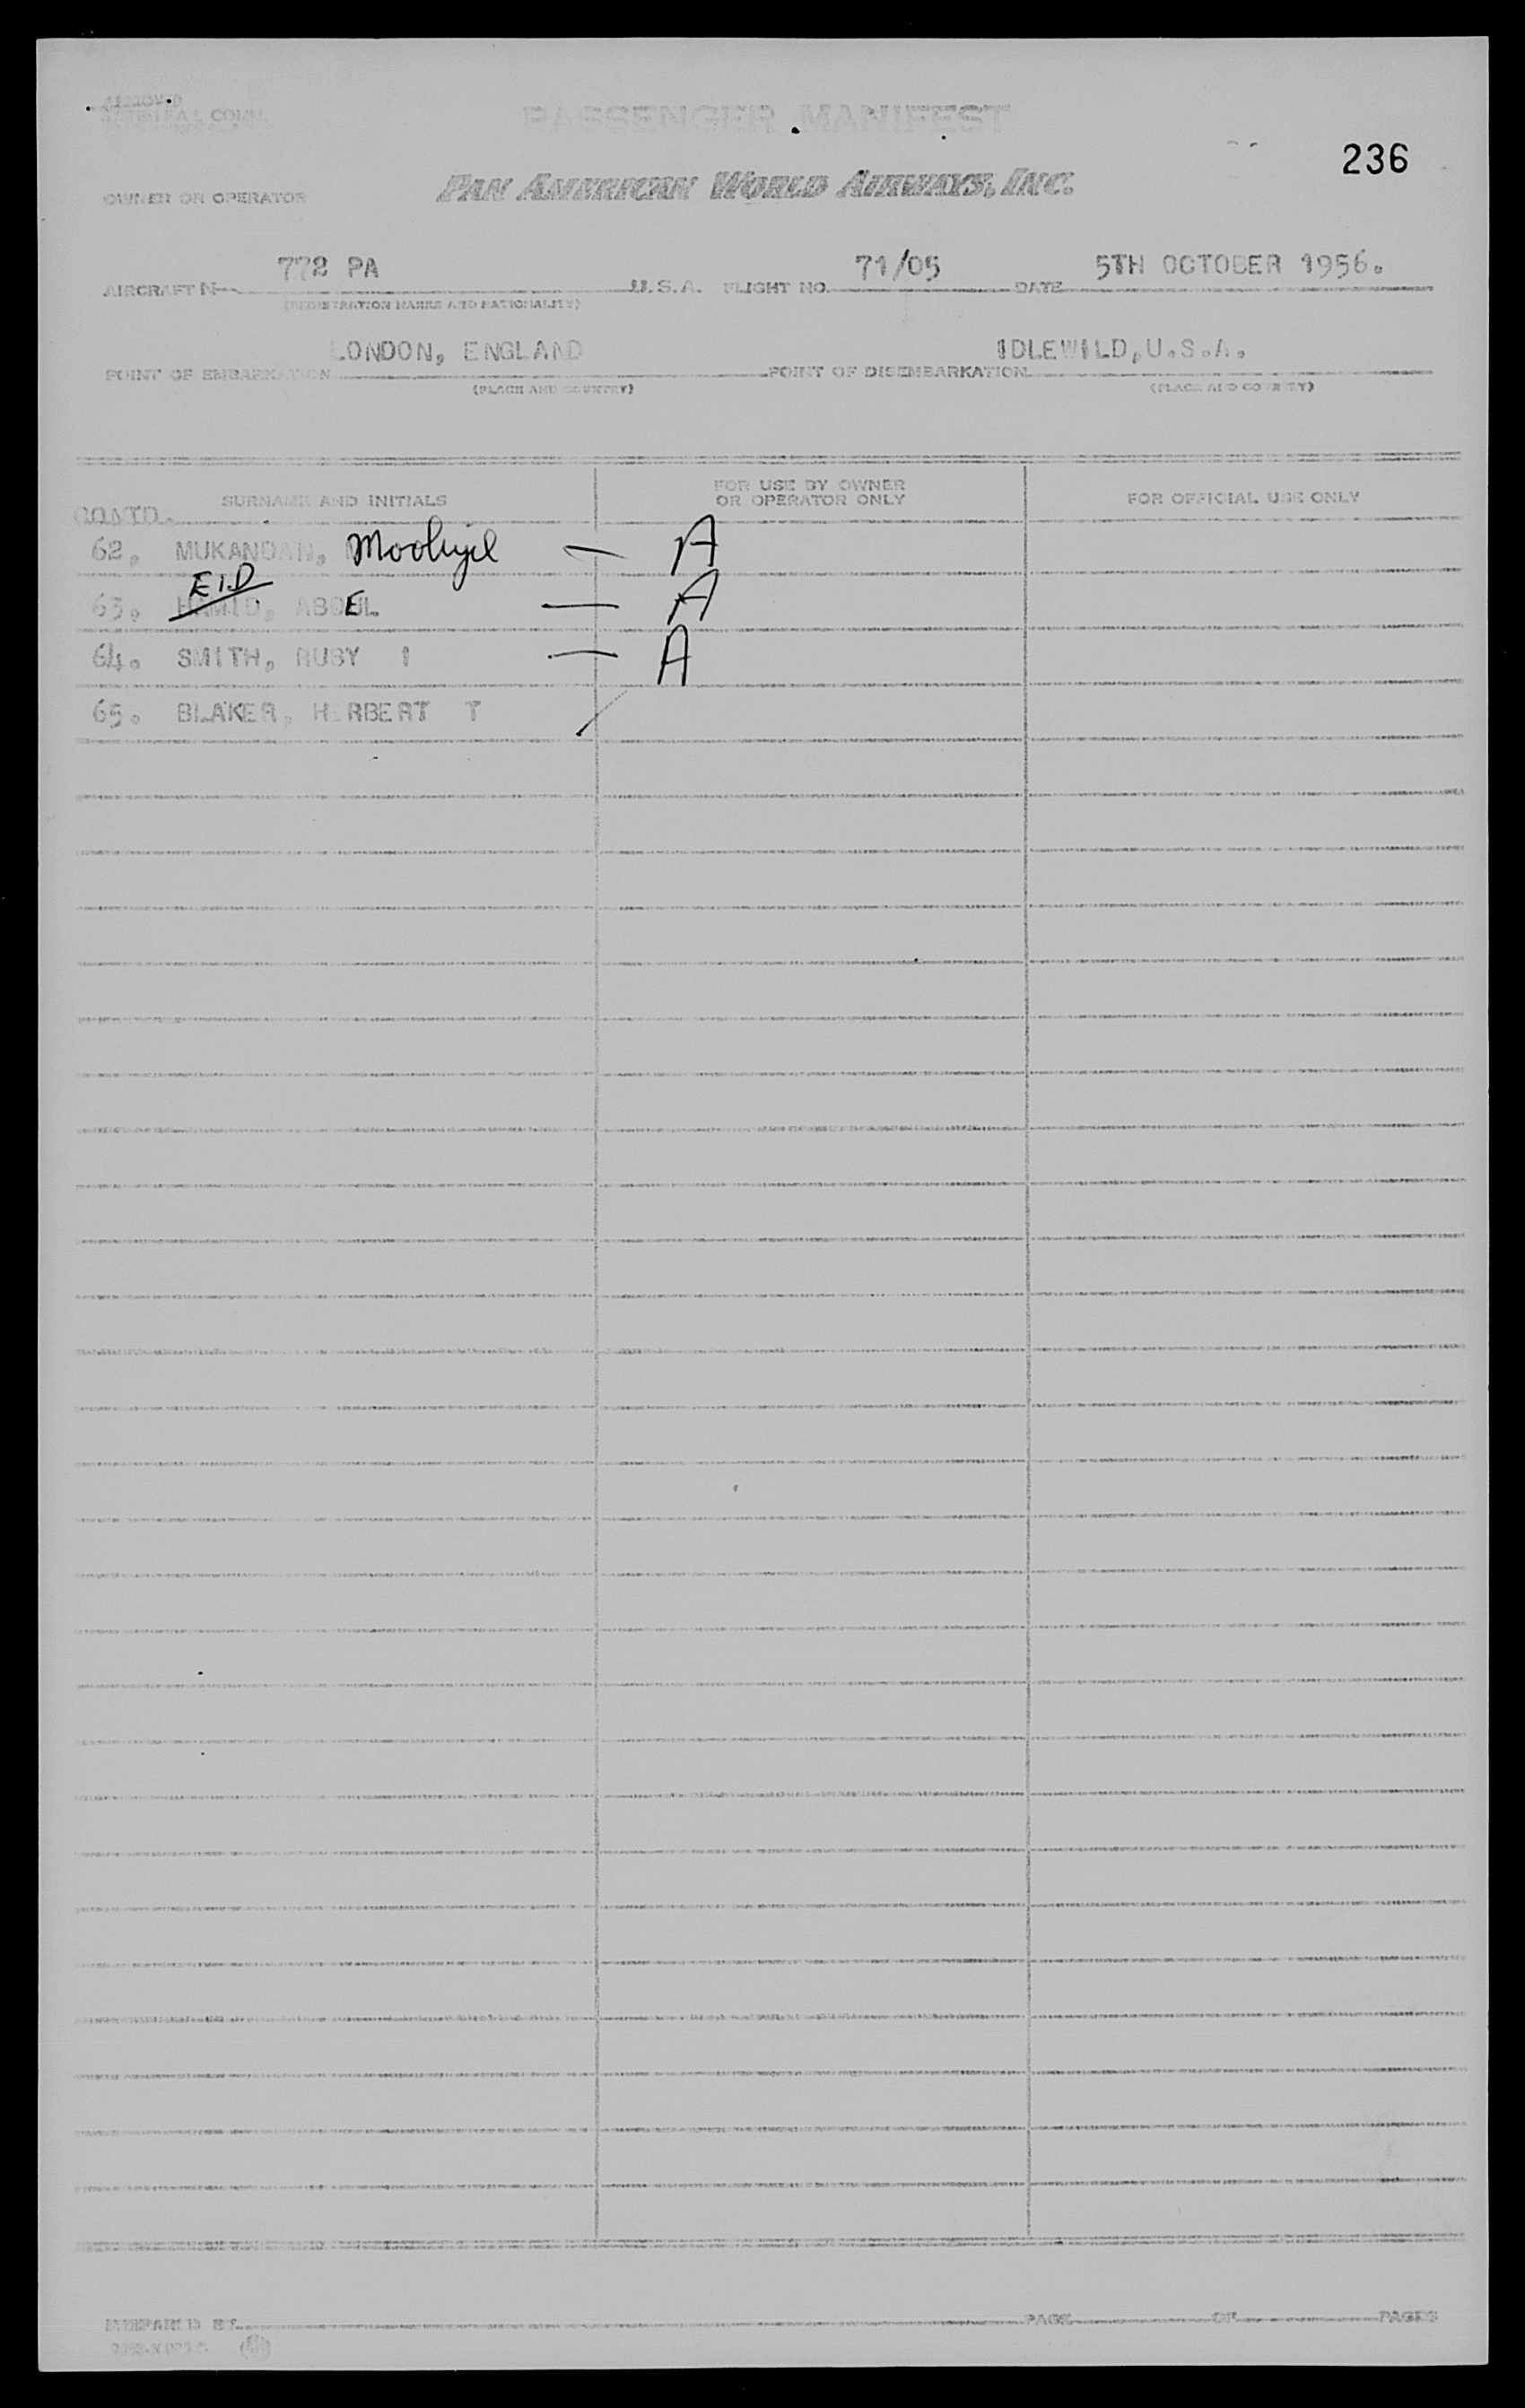 PASSENGER MANIFEST
236
OWNER OR OPERATOR PAN AMERICAN WORLD AIRWAYS, INC.
AIRCRAFT N 772 PA U.S.A. FLIGHT NO. 71/05 DATE 5TH OCTOBER 1956.
(REGISTRATION MARKS AND NATIONALITY)
POINT OF EMBARKATION LONDON, ENGLAND POINT OF DISEMBARKATION IDLEWILD, U.S.A.
(PLACE AND COUNTRY) (PLACE AND COUNTRY)
SURNAME AND INITIALS FOR USE BY OWNER OR OPERATOR ONLY FOR OFFICIAL USE ONLY
CONTD.
62. MUKANDAN, — A
EID
63. HAMID, ABDUL E — A
64. SMITH, RUBY I — A
65. BLAKER, HERBERT T /
PREPARED BY PAGE OF PAGES